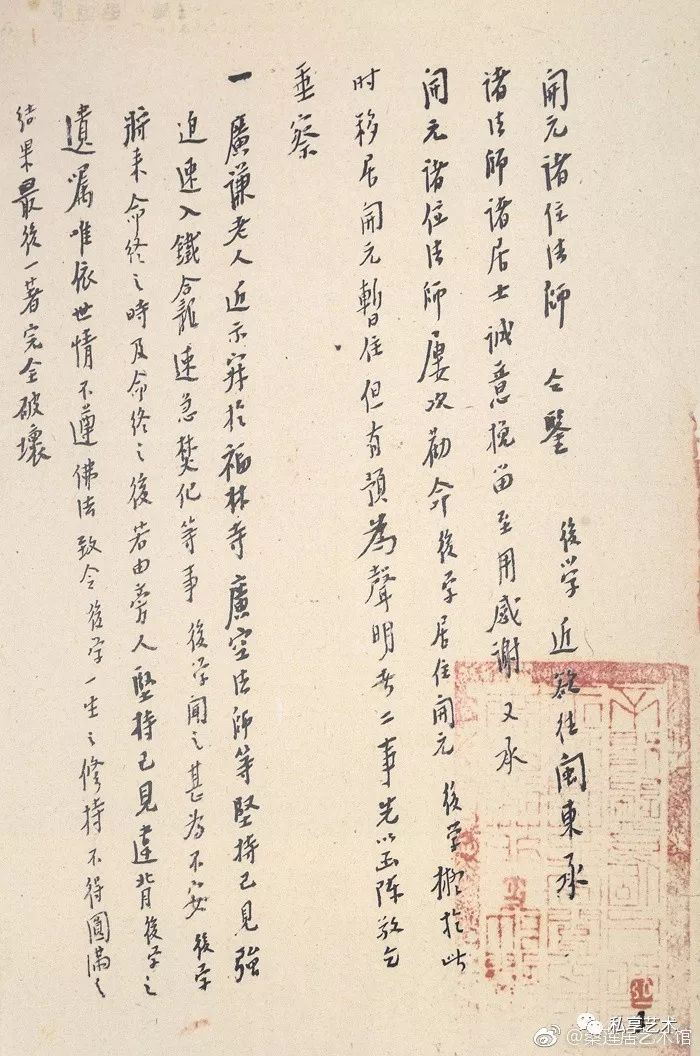 開元諸位法師 仝鑒 後学近欲往閩東承
諸法師諸居士誠意挽留至用感謝又承
開元諸位法師屢次勸命後学居住開元 後学擬於此
时移居開元暫住但有預為聲明者二事先以函陳敬乞
垂察
一 廣謙老人近示寂於福林寺廣空法師等堅持己見強
迫速入鐵龕速急焚化等事後学聞之甚為不安後学
將来命終之時及命終之後若由旁人堅持己見違背後学之
遺嘱唯依世情不遵佛法致令後学一生之修持不得圓滿之
結果最後一著完全破壞
30
1
私享艺术
@秦莲居艺术馆